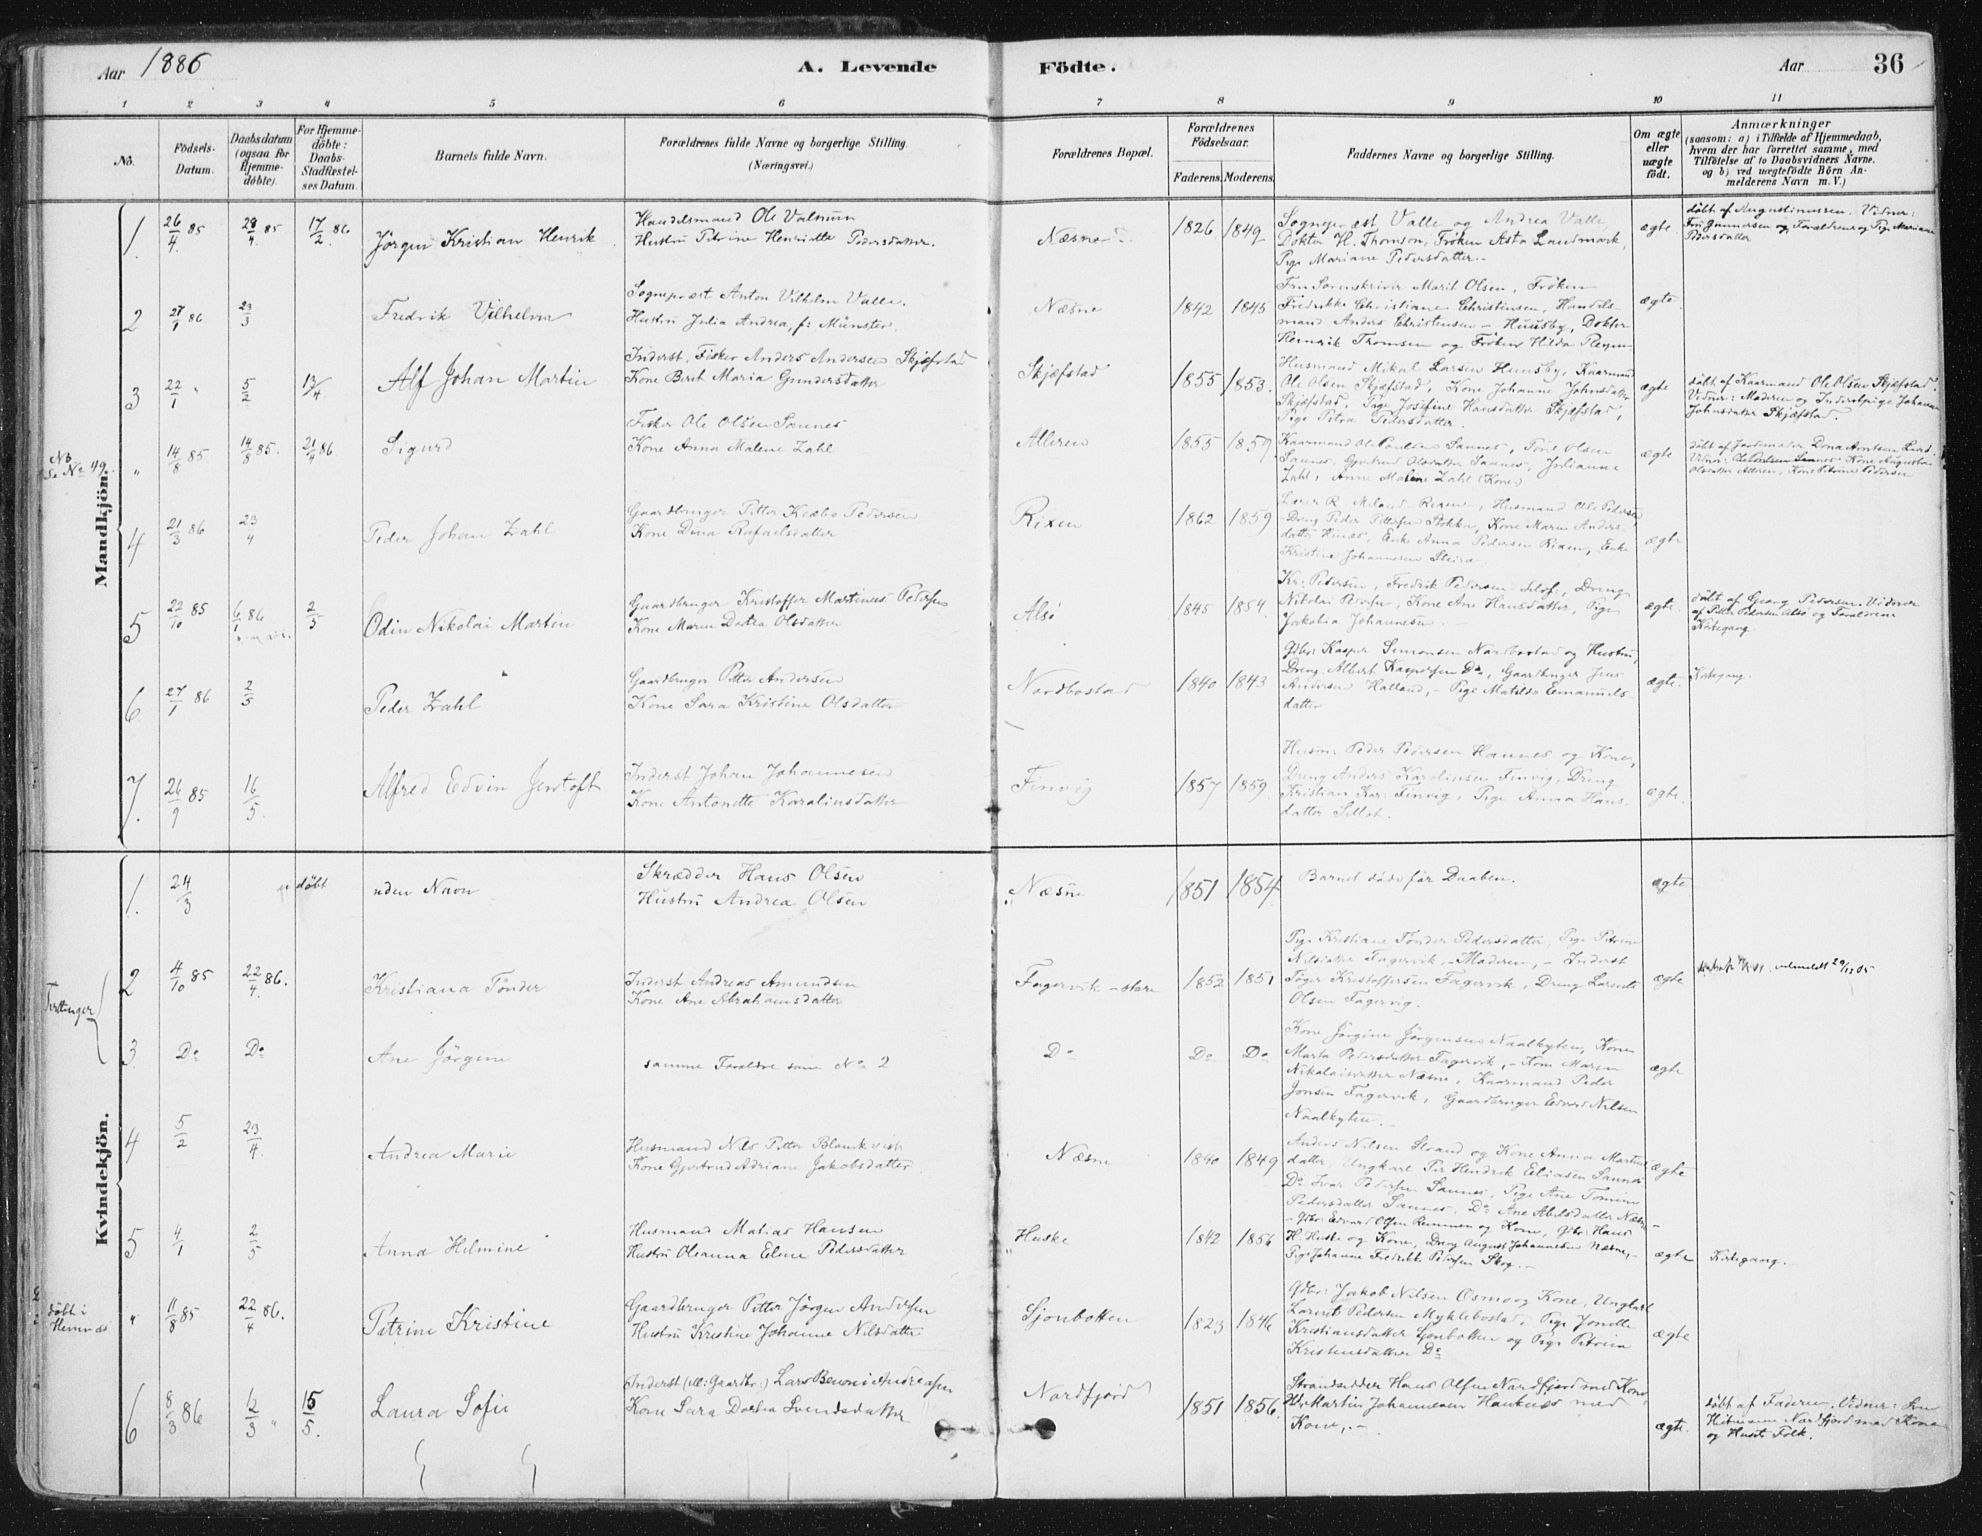 Aar 1886 A. Levende Födte. Aar 36
1 2 3 4 5 6 7 8 9 10 11
No.
Födsels-Datum.
Daabsdatum (ogsaa for Hjemme-döbte).
For Hjemme-döbte: Daabs-Stadfæstel-ses Datum.
Barnets fulde Navn.
Forældrenes fulde Navne og borgerlige Stilling. (Næringsvei.)
Forældrenes Bopæl.
Forældrenes Födselsaar.
Faderens. Moderens.
Faddernes Navne og borgerlige Stilling.
Om ægte eller uægte födt.
Anmærkninger
(saasom: a) i Tilfælde af Hjemmedaab,
hvem der har forrettet samme, med
Tilföielse af to Daabsvidners Navne.
og b) ved uægtefödte Börn An-
melderens Navn m. V.)
Mandkjön.
1. 26/4 85 28/4 85 17/2 86 Jörgen Kristian Henrik
Handelsmand Ole Valnum
Hustru Petrine Henriette Pedersdatter.
Næsne 1826 1849
Sognepræst Valle og Andrea Valle,
Doktor H. Thomsen, Fröken Asta Landmark,
Pige Mariane Pedersdatter.-
ægte
döbt af Augustinussen. Vidner:
Fru Gunnersen og Forældrene og Pige Mariane
Pedersdatter
2 27/1 86 23/3 Fredrik Vilhelm
Sogneprest Anton Vilhelm Valle.
Hustru Julia Andrea, f: Münster.
Næsne 1842 1845
Fru Sorenskriver Marit Olsen, Fröken
Fredrikke Christiane Christensen, Handels-
mand Anders Christensen - Huusby, Doktor
Henrik Thomsen og Fröken Hilda
ægte
3 22/1 " 5/2 13/4 Alf Johan Martin
Inderst, Fisker Anders Andersen Skjæfstad
Kone Berit Maria Gundersdatter
Skjæfstad 1855 1853.
Husmand Mikal Larsen Huusby, Kaarmand
Ole Olsen Skjæfstad, Kone Johanne Johnsdatter
Skjæfstad, Pige Josefine Hansdatter Skjæfstad,
Pige Petra Pedersdatter.
ægte
döbt af Kaarmand Ole Olsen Skjæfstad.
Vidner: Moderen og Inderstpige Johanna
Johnsdatter Skjæfstad.
Nb
Se No 49.
" 14/8 85 14/8 85. 21/4 86. Sigurd
Fisker Ole Olsen Sannes
Kone Anna Malene Zahl
Alleren 1855 1859
Kaarmand Ole Poulsen Sannes, Tore Olsen
Sannes, Gjertrud Olsdatter Sannes, Julianne
Zahl, Anne Malene Zahl (Kone)
ægte
döbt af Jordemoder Dona Arntsen Lund.
Vidner: Ole Poulsen Sannes, Kone Augusta
Olsdatter Alleren, Kone Petrine Pedersen
4 21/3 86 23/4 Peder Johan Zahl
Gaardbruger Petter Kræbo Pedersen
Kone Dina Rafaelsdatter
Rixen 1862 1859
Lærer R. Meland Rixen, Husmand Ole Pedersen
Dreng Peder Pettersen Stokka, Kone Maren Anders-
datter Hinæs, Enke Anna Pedersen Rixen, Enke
Kristine Johannesen Steira.
ægte
5 22/10 85 6/1 86 2/5 Odin Nikolai Martin
Gaardbruger Kristoffer Martinus Pedersen
Kone Maren Dortea Olsdatter
Alsö 1845 1854.
Kr. Pedersen, Fredrik Pedersen Dreng
Nikolai Pedersen, Kone Ane Hansdatter, Pige
Jakobia Johannesen.-
ægte.
döbt af Georg Pedersen. Vidner
af Petter Pedersen Alsö og Forældrene
Kirkegang.
6 27/1 86 2/5 Peder Zahl
Gaardbruger Petter Andersen
Kone Sara Kristine Olsdatter
Nordbostad 1840 1843
Gdbr: Kasper Simonsen Nordbostad og Hustru,
Dreng Albert Kaspersen Do, Gaardbruger Jens
Andersen Halland, - Pige Matilde Emanuels-
datter
ægte. Kirkegang.
7. 26/9 85 16/5. Alfred Edvin Jentoft
Inderst Johan Johannesen
Kone Antonette Karolinsdatter
Finvig 1857 1859.
Husm: Peder Pedersen Hannes og Kone,
Dreng Anders Karolinsen Finvig, Dreng
Kristian Kar: Finvig, Pige Anna Hans-
datter Sillot.
ægte.
Kvindekjön.
1. 24/3 döbt uden Navn
Skrædder Hans Olsen
Hustru Andrea Olsen
Næsne 1851 1854
Barnet döde för Daaben.
ægte
2 4/10 85 22/4 86. Kristiana Tönder
Inderst Andreas Amundsen
Kone Ane Abrahamsdatter
Fagervik 1852 1851
Pige Kristiane Tönder Pedersdatter, Pige Petrine
Nilsdatter Fagervik, - Moderen, - Inderst
Töger Kristoffersen Fagervik, Dreng Lorents
Olsen Fagervig.
ægte
utmeldt 29/12 05
3 Do Do Ane Jörgine
samme Forældre som No 2
Do Do Do
Kone Jörgine Jörgensen Naalkyten, Kone
Marta Pedersdatter Fagervik, - Kone Maren
Nikolaisdatter Næsne, Kaarmand Peder
Jonsen Fagervik, Gaardbruger Edvard Nilsen
Naalkyten.-
ægte
4 5/2 23/4. Andrea Marie
Husmand Nils Petter Blomkvist
Kone Gjertrud Adriane Jakobsdatter
Næsne 1840 1849
Anders Nilsen Strand og Kone Anna Martins-
datter, Ungkarl Per Hendrik Eliasen Sannes
Do Ivar Pedersen Sannes, Pige Ane Tomine
Pedersdatter Sannes, Do Ane Abelsdatter Næsne
ægte
5 4/1 2/5 Anna Helmine
Husmand Matias Hansen
Hustru Oleanna Eline Pedersdatter
Huske 1842 1856
- Gdbr: Edvard Olsen Remmen og Kone, Gdbr: Hans
H. Huske og Kone, Dreng August Johannesen Næsne,-
Pige Johanne Fredrikke Petersen Skog.-
ægte Kirkegang.-
döbt i Hemnæs
" 11/8 85 22/4 86. Petrine Kristine
Gaardbruger Petter Jörgen Andersen
Hustru Kristine Johanne Nilsdatter
Sjonbotten 1823 1846
Gdbr: Jakob Nilsen Osmo og Kone, Ungkarl
Lorents Pedersen Myklebostad, Pige Jonette
Kristiansdatter Sjonbotten og Pige Petrine
Kristensdatter Do
ægte
6 8/3 86 12/3 " 15/5. Laura Sofie
Inderst (ell: Gaardbr:) Lars Benoni Andreasen
Kone Sara Dortea Svendsdatter
Nordfjord 1851 1856.
Strandsidder Hans Olsen Nordfjord med Kone,
Martin Johannesen Hauknes med
Kone,.-
ægte.
döbt af Faderen. Vidner:
Nordfjord med Kone
og Husets Folk.